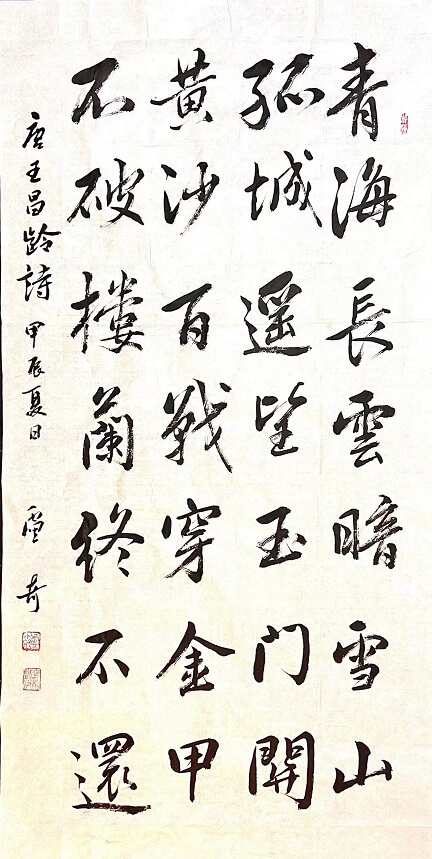 青海長雲暗雪山
孤城遥望玉门開
黄沙百戰穿金甲
不破樓蘭終不還
唐王昌齡詩 甲辰夏日 奇